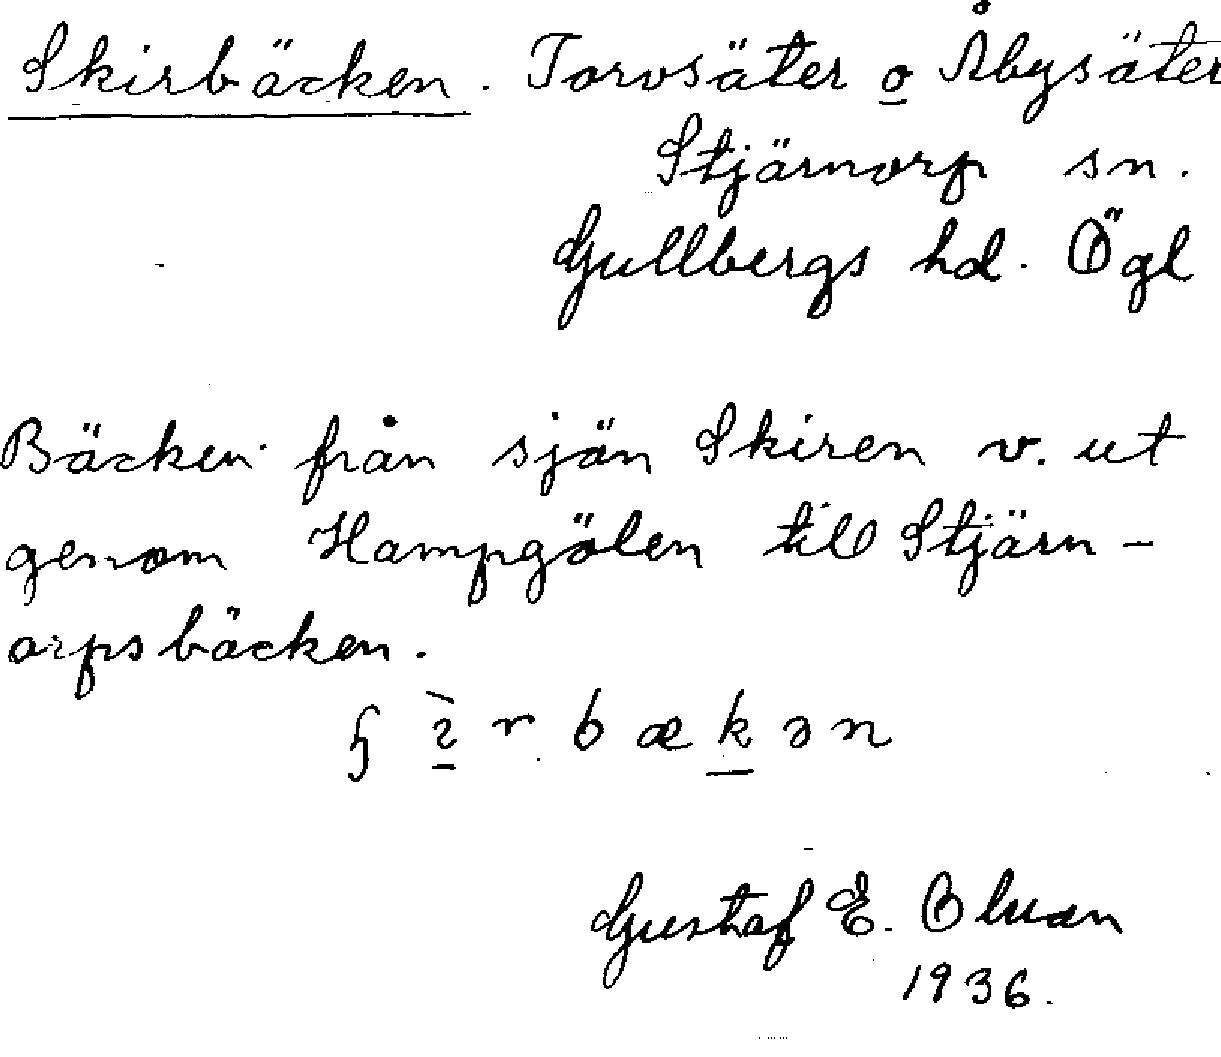 Skirbäcken. Torvsäter o Åbysäter
Stjärnorp sn.
Gullbergs hd. Ögl
Bäcken från sjön Skiren v. ut
genom Hampgölen till Stjärn-
orpsbäcken.
bækən
Gustaf E.
1936.